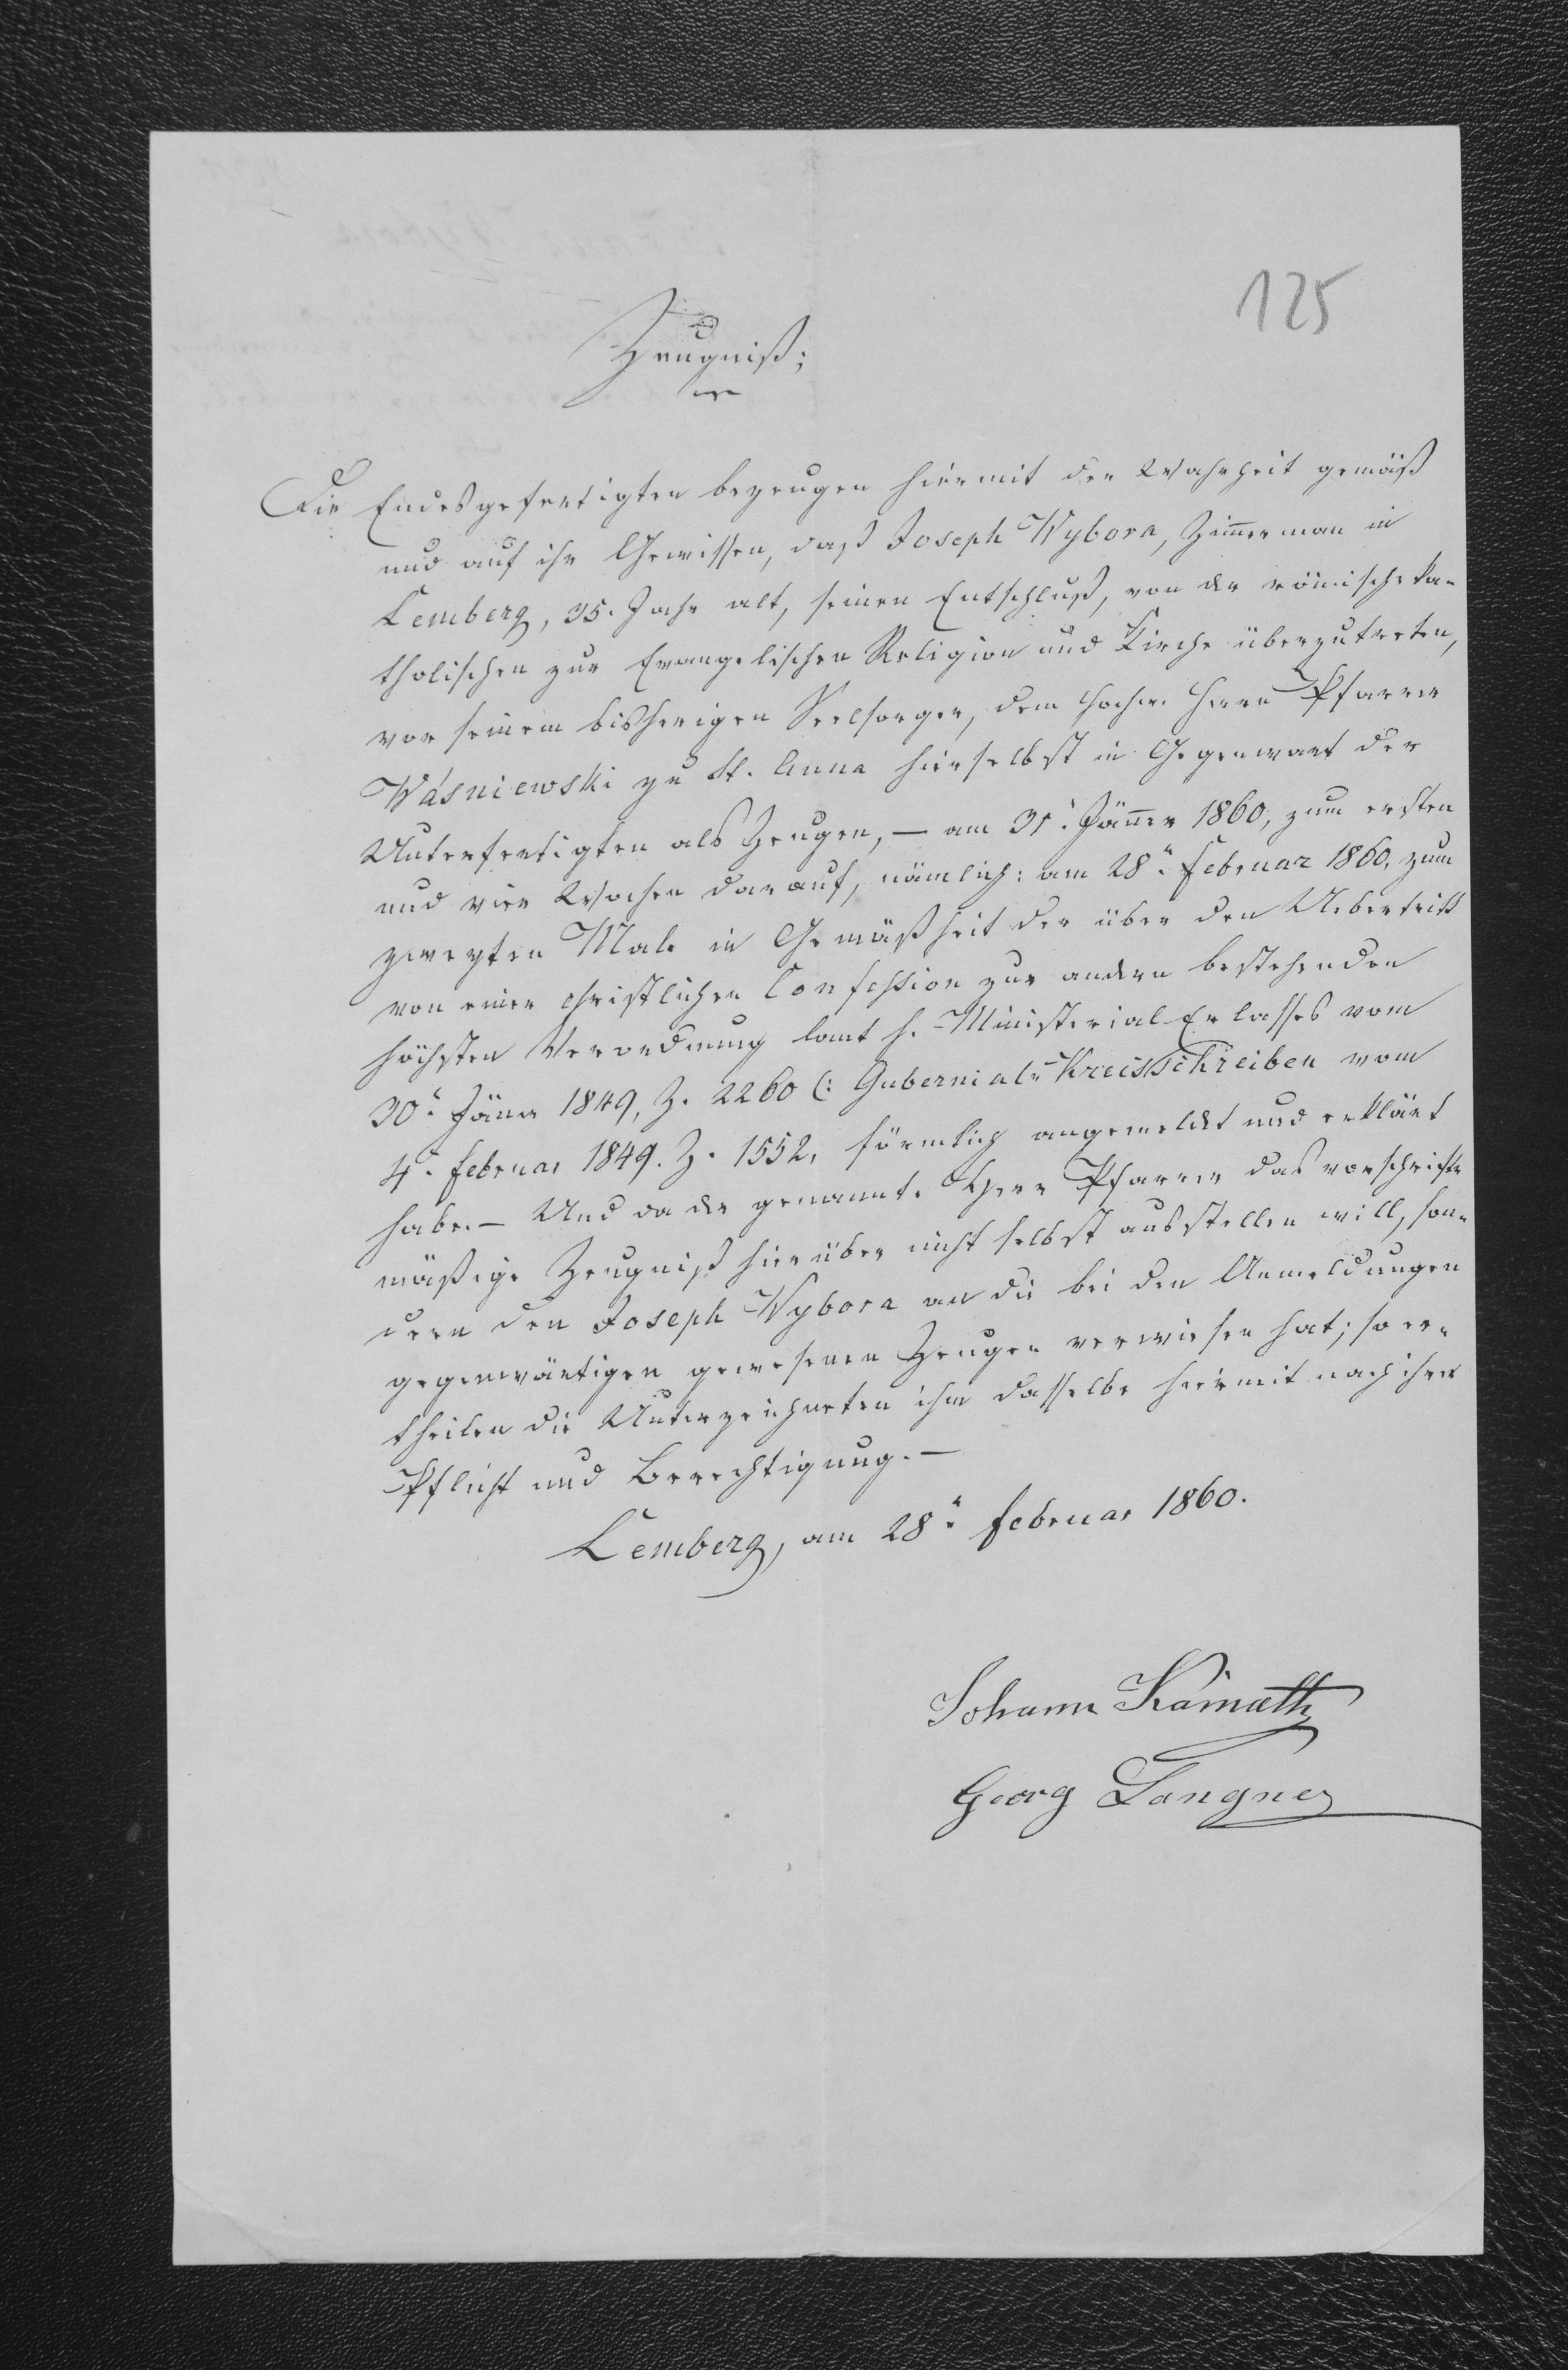 125
Zeugniß;
Die Endesgefertigten bezeugen hiermit der Wahrheit gemäß
und auf ihr Gewissen, daß Joseph Wybora, Zim̄erman in
Lemberg, 35. Jahr alt, seinen Entschluß, von der römisch-ka-
tholischen zur Evangelischen Religion und Kirche überzutreten,
vor seinem bisherigen Seelsorger, dem hochw. Herrn Pfarrer
Wásniewski zu St. Anna hierselbst in Gegenwart der
Unterfertigten als Zeugen, – am 31t. Jän̄er 1860, zum ersten
und vier Wochen darauf, nämlich: am 28t. Februar 1860. zum
zweyten Male in Gemäßheit der über den Uebertritt
von einer christlichen Confession zur andern bestehenden
höchsten Verordnung laut h. Ministerial Erlasses vom
30t. Jäner 1849, Z. 2260 (: Gubernial-Kreisschreiben vom
4t. Februar 1849. Z. 1552, förmlich angemeldet und erklärt
habe. – Und da der genannte Herr Pfarrer das vorschrifts-
mäßige Zeugniß hierüber nicht selbst ausstellen will, son-
dern den Joseph Wybora an die bei den Anmeldungen
gegenwärtigen gewesenen Zeugen verwiesen hat; so er-
theilen die Unterzeichneten ihm dasselbe hiermit nach ihrer
Pflicht und Berechtigung. –
Lemberg, am 28t. Februar 1860.
Johann Kamath
Georg Langner